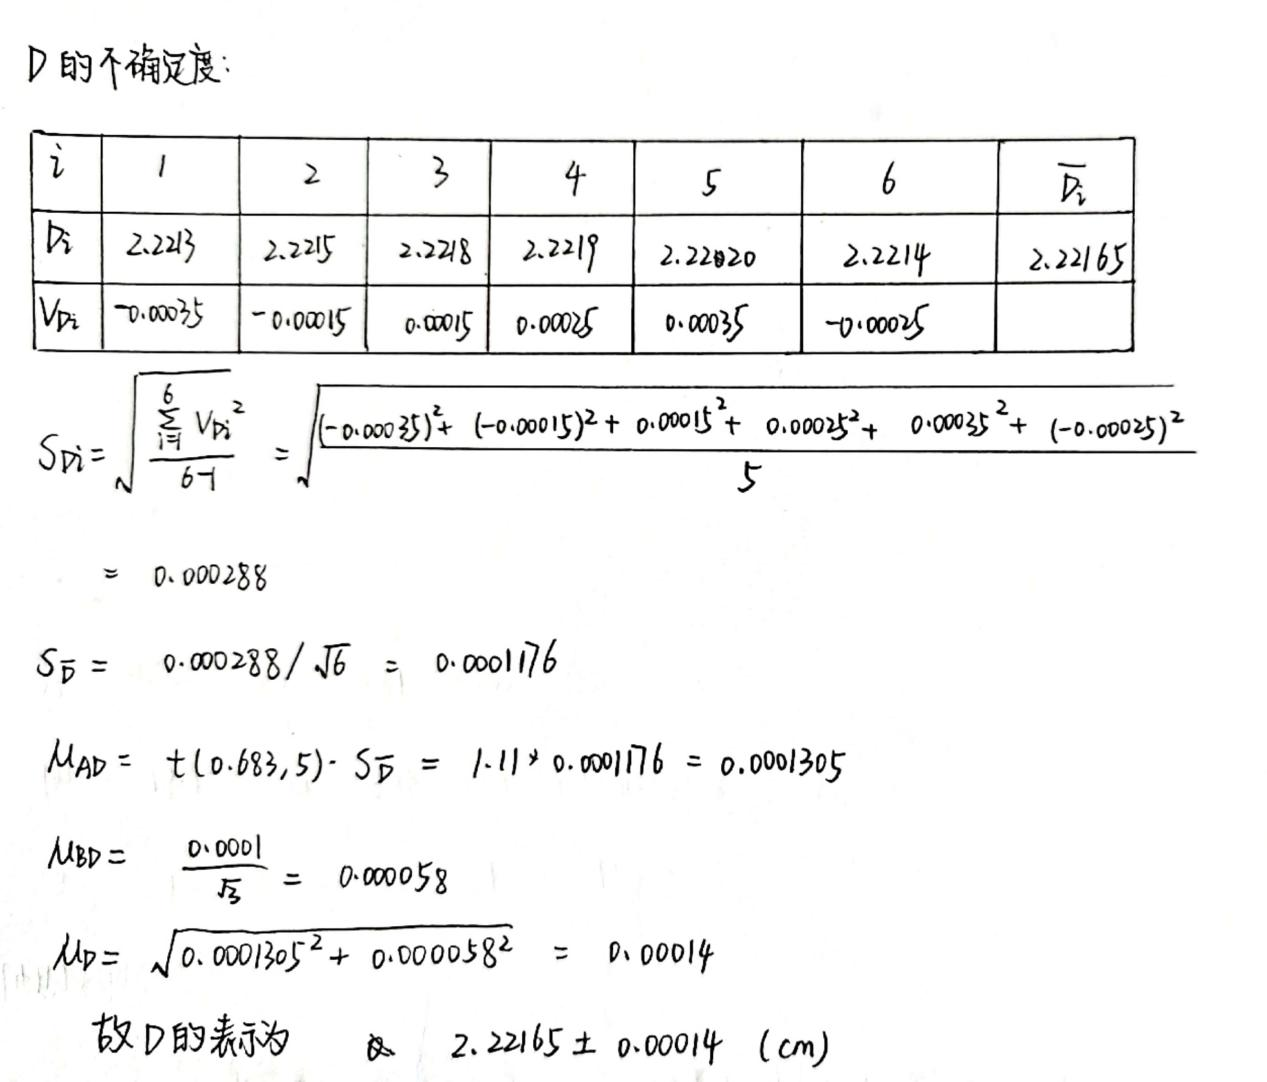 D的不确定度:
i 1 2 3 4 5 6 D̅i
Di 2.2213 2.2215 2.2218 2.2219 2.22020 2.2214 2.22165
VDi -0.00035 -0.00015 0.00015 0.00025 0.00035 -0.00025
SDi = √(∑_{i=1}^{6} VDi² / (6-1)) = √(((-0.00035)² + (-0.00015)² + 0.00015² + 0.00025² + 0.00035² + (-0.00025)²) / 5)
= 0.000288
S_D̅ = 0.000288/√6 = 0.0001176
μAD = t(0.683,5)·S_D̅ = 1.11 * 0.0001176 = 0.0001305
μBD = 0.0001/√3 = 0.000058
μD = √(0.0001305² + 0.000058²) = 0.00014
故D的表示为 2.22165 ± 0.00014 (cm)